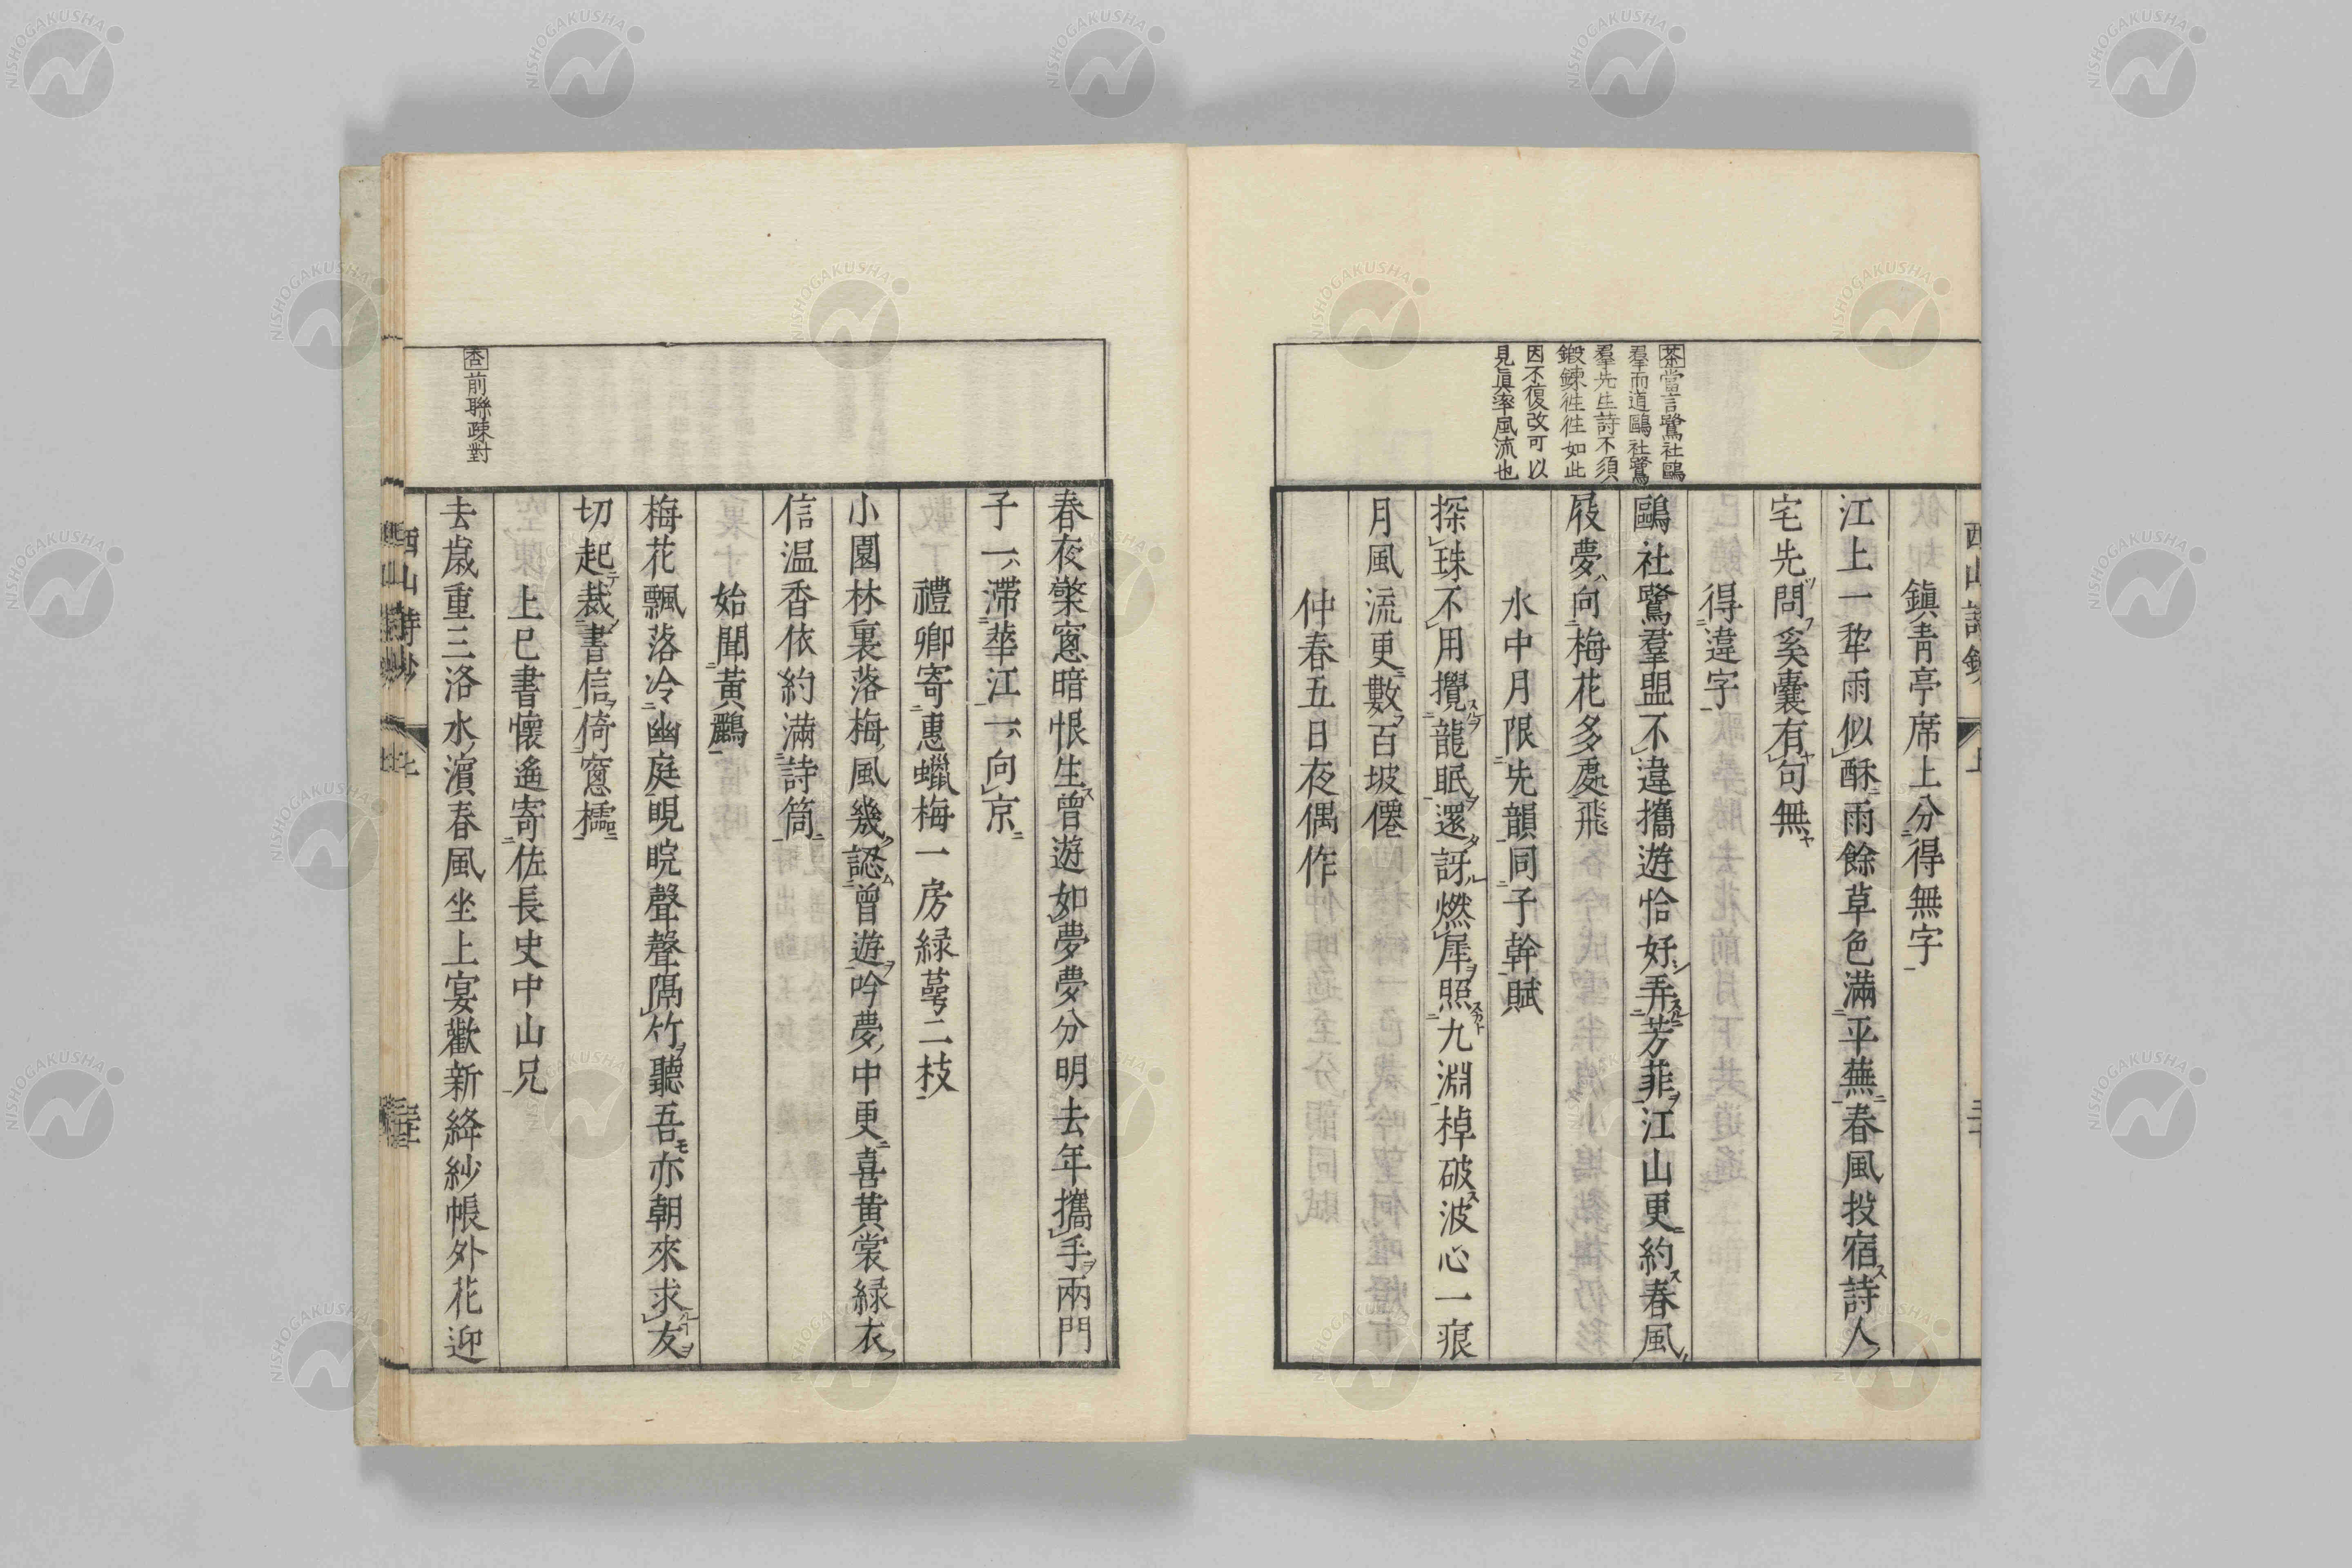 茶當言鷺社鷗
羣而道鷗社鷺
羣先生詩不須
鍛鍊徃徃如此
因不復改可以
見眞率風流也
鎭靑亭席上分得無字
江上一犂雨似酥雨餘草色滿平蕪春風投宿詩人
宅先問奚囊有句無
得違字
鷗社鷺羣盟不違攜遊恰好弄芳菲江山更約春風
屐夢向梅花多處飛
水中月限先韻同子幹賦
探珠不用攪龍眠還訝燃犀照九淵棹破波心一痕
月風流更數百坡僊
仲春五日夜偶作
春夜檠窻暗恨生曾遊如夢夢分明去年攜手兩門
子一滯華江一向京
禮卿寄惠蠟梅一房緑萼二枝
小園林裏落梅風幾認曾遊吟夢中更喜黃裳緑衣
信温香依約滿詩筒
始聞黃鸝
梅花飄落冷幽庭睍睆聲聲隔竹聽吾亦朝來求友
切起裁書信倚窻櫺
上巳書懷遙寄佐長史中山兄
去歲重三洛水濵春風坐上宴歡新絳紗帳外花迎
杏前聯疎對
西山詩鈔